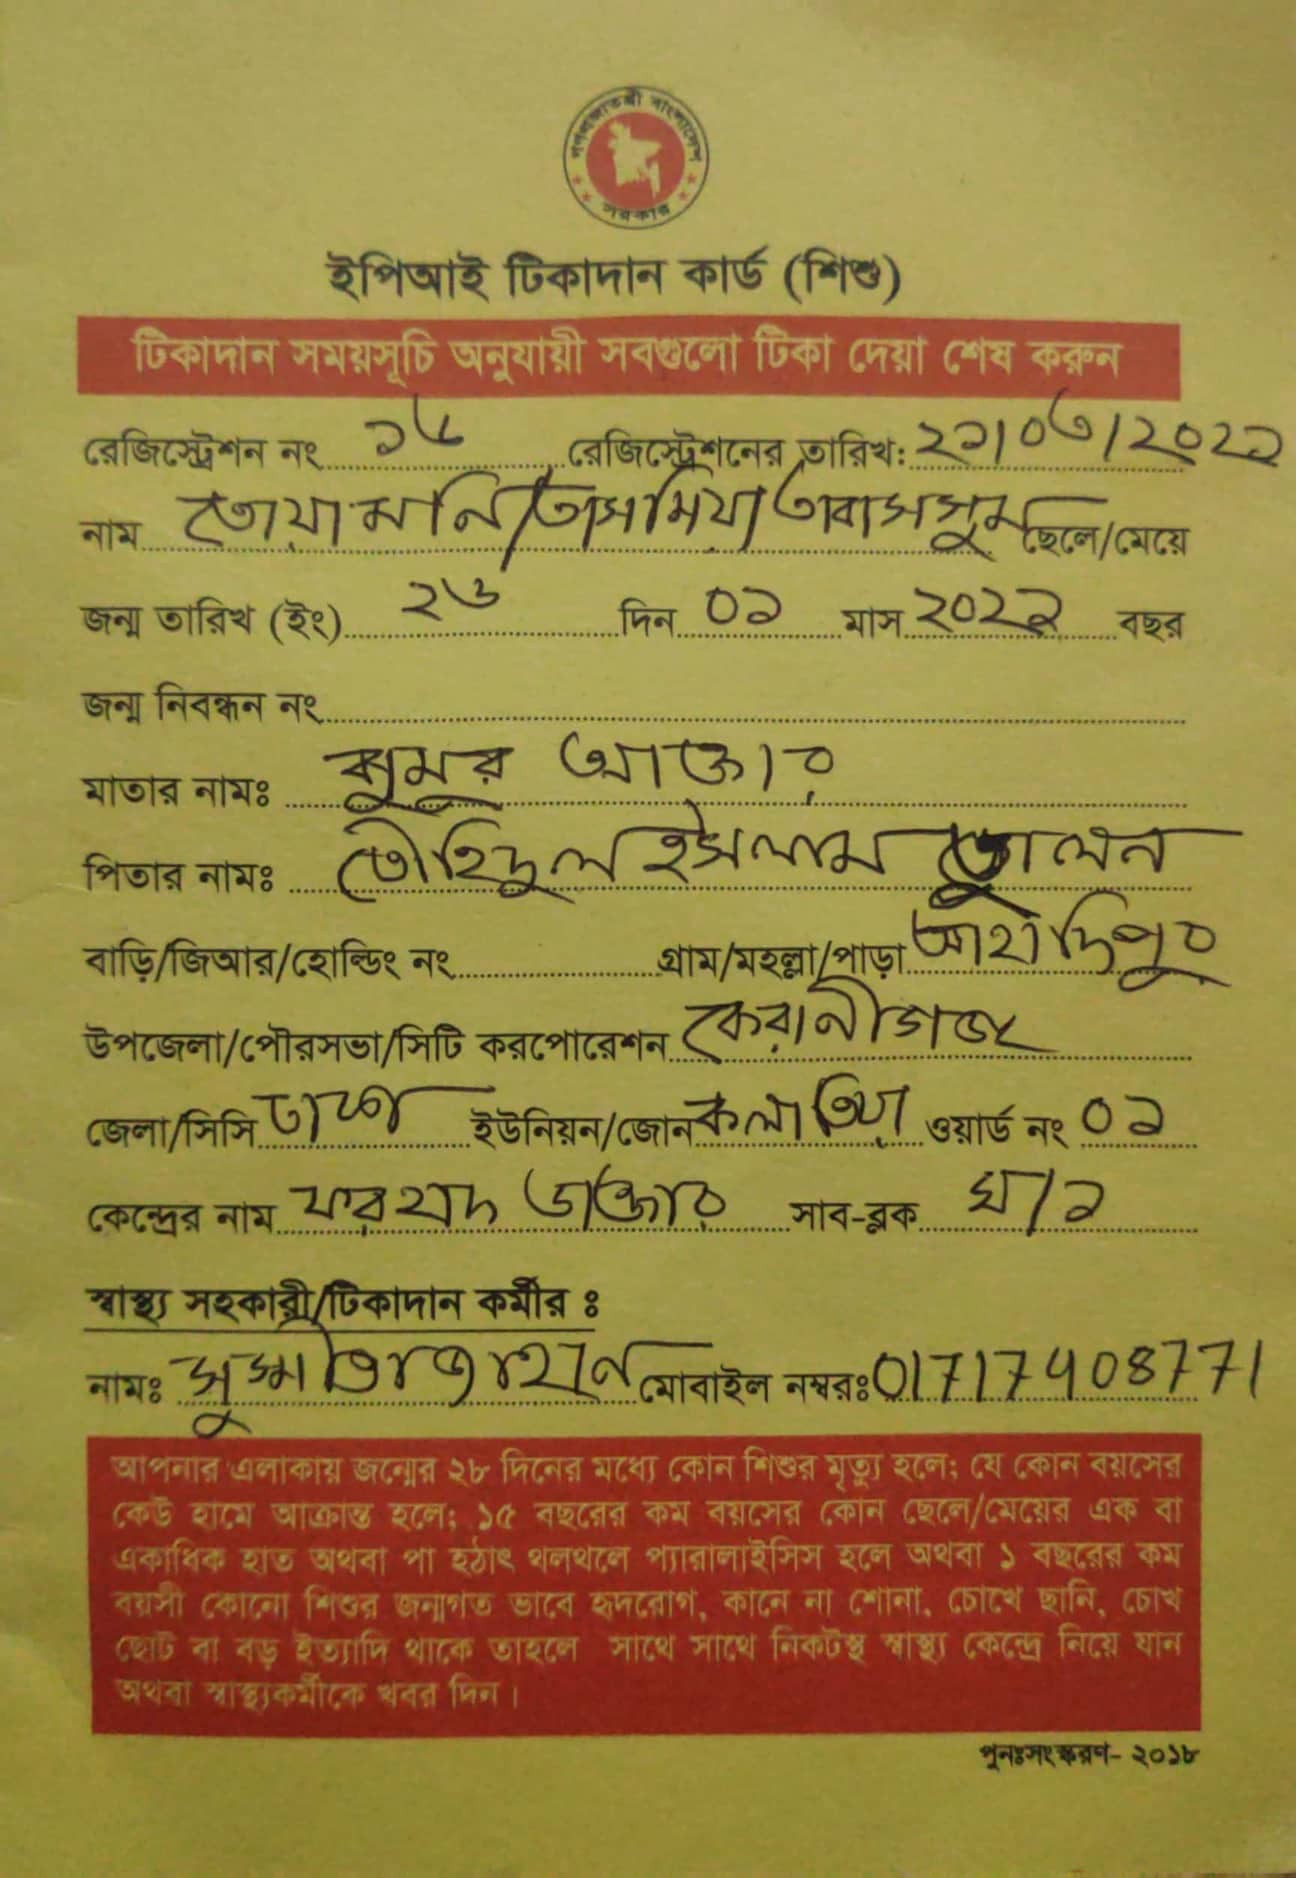 গণপ্রজাতন্ত্রী বাংলাদেশ সরকার
ইপিআই টিকাদান কার্ড (শিশু)
টিকাদান সময়সূচি অনুযায়ী সবগুলো টিকা দেয়া শেষ করুন
রেজিস্ট্রেশন নং ১৬ রেজিস্ট্রেশনের তারিখ: ২১/০৩/২০২১
নাম তোয়া মনি/তাসমিয়া তাবাসসুম ছেলে/মেয়ে
জন্ম তারিখ (ইং) ২৬ দিন ০১ মাস ২০২১ বছর
জন্ম নিবন্ধন নং
মাতার নামঃ ঝুমুর আক্তার
পিতার নামঃ তৌহিদুল ইসলাম তুালন
বাড়ি/জিআর/হোল্ডিং নং গ্রাম/মহল্লা/পাড়া আহাদিপুর
উপজেলা/পৌরসভা/সিটি করপোরেশন কেরানীগঞ্জ
জেলা/সিসি ঢাকা ইউনিয়ন/জোন কলাতিয়া ওয়ার্ড নং ০১
কেন্দ্রের নাম ফরহাদ ডাক্তার সাব-ব্লক ঘ/১
স্বাস্থ্য সহকারী/টিকাদান কর্মীর ঃ
নামঃ মোবাইল নম্বরঃ 01717408771
আপনার এলাকায় জন্মের ২৮ দিনের মধ্যে কোন শিশুর মৃত্যু হলে; যে কোন বয়সের
কেউ হামে আক্রান্ত হলে; ১৫ বছরের কম বয়সের কোন ছেলে/মেয়ের এক বা
একাধিক হাত অথবা পা হঠাৎ থলথলে প্যারালাইসিস হলে অথবা ১ বছরের কম
বয়সী কোনো শিশুর জন্মগত ভাবে হৃদরোগ, কানে না শোনা, চোখে ছানি, চোখ
ছোট বা বড় ইত্যাদি থাকে তাহলে সাথে সাথে নিকটস্থ স্বাস্থ্য কেন্দ্রে নিয়ে যান
অথবা স্বাস্থ্যকর্মীকে খবর দিন।
পুনঃসংস্করণ- ২০১৮